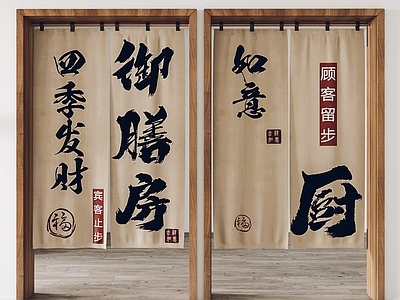 御膳房
四季发财
福
宾客止步
如意
顾客留步
厨
福